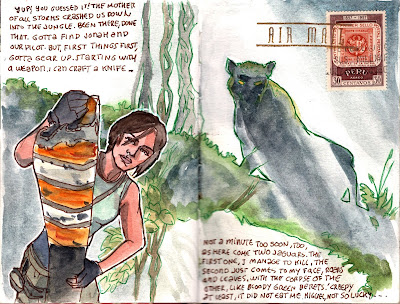 YUP, YOU GUESSED IT! THE MOTHER
OF ALL STORMS CRASHED US DOWN
INTO THE JUNGLE. BEEN THERE, DONE
THAT. GOTTA FIND JONAH AND
OUR PILOT. BUT, FIRST THINGS FIRST,
GOTTA GEAR UP. STARTING WITH
A WEAPON. I CAN CRAFT A KNIFE...
AIR MA
PERU
CENTAVOS
NOT A MINUTE TOO SOON, TOO,
AS HERE COME TWO JAGUARS. THE
FIRST ONE, I MANAGE TO KILL, THE
SECOND JUST COMES TO MY FACE, ROARS
AND LEAVES, WITH THE CORPSE OF THE
OTHER, LIKE BLOODY GREEN BERETS. CREEPY
AT LEAST, IT DID NOT EAT ME. MIGUEL, NOT SO LUCKY...